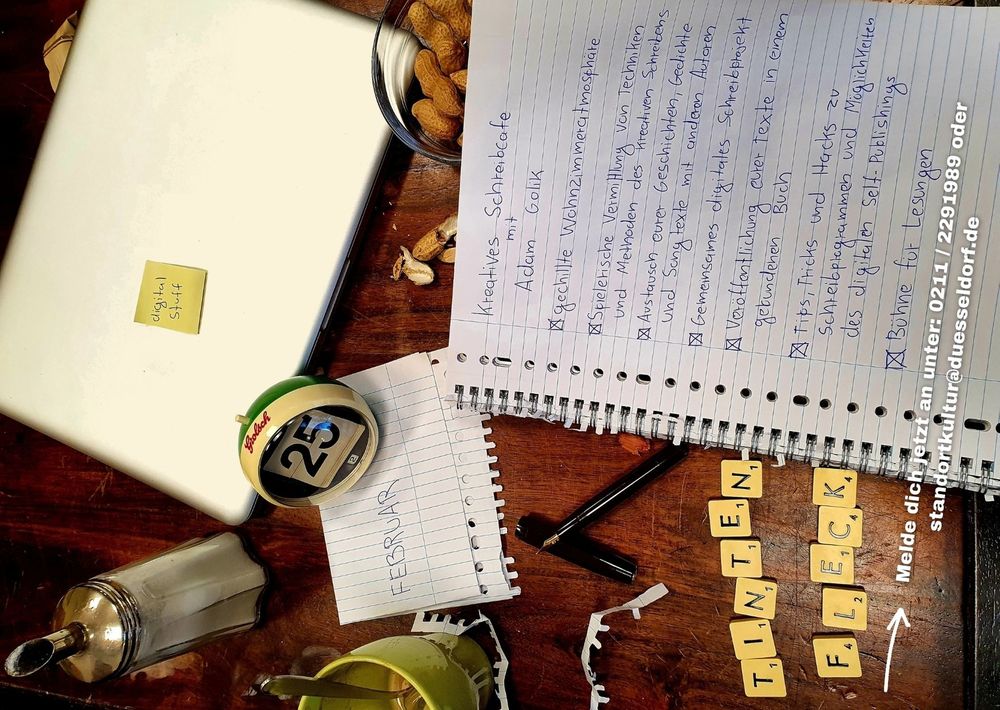 Kreatives Schreibcafe
mit
Adam Golik
☒ gechillte Wohnzimmeratmosphäre
☒ Spielerische Vermittlung von Techniken
und Methoden des kreativen Schreibens
☒ Austausch eurer Geschichten, Gedichte
und Songtexte mit anderen Autoren
☒ Gemeinsames digitales Schreibprojekt
☒ Veröffentlichung eurer Texte in einem
gebundenen Buch
☒ Tips, Tricks und Hacks zu
Schreibprogrammen und Möglichkeiten
des digitalen Self-Publishings
☒ Bühne für Lesungen
digital
Stuff
Grolsch
25
FEBRUAR
T1 I1 N1 T1 E1 N1
F4 L2 E1 C4 K4
Melde dich jetzt an unter: 0211 / 2291989 oder
standortkultur@duesseldorf.de